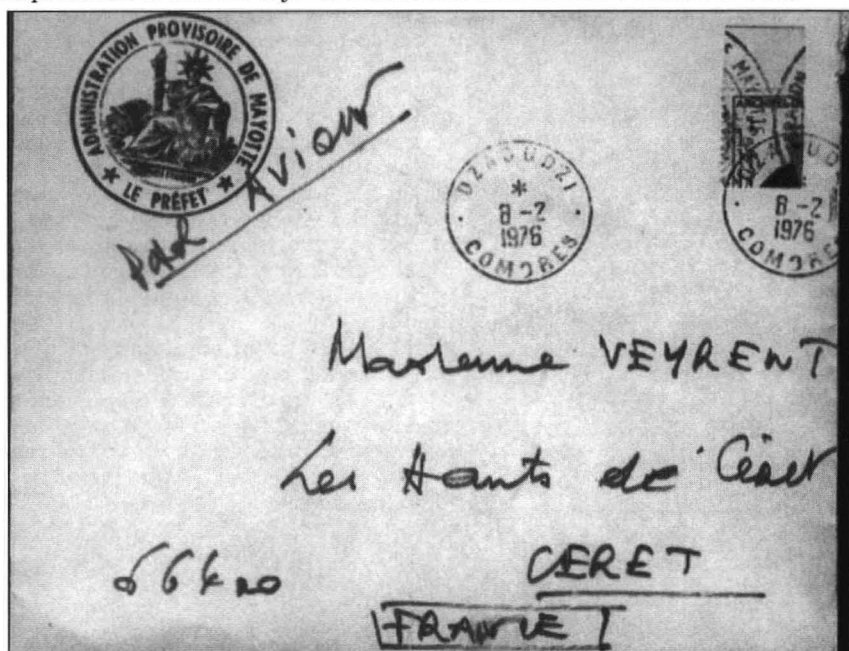 ADMINISTRATION PROVISOIRE DE MAYOTTE
★ LE PRÉFET ★
Par Avion
DZAOUDZI
*
8 -2
1976
COMORES
DZAOUDZI
8 -2
1976
COMORES
VEYRENT
Les Hauts de Céret
66400
CERET
FRANCE